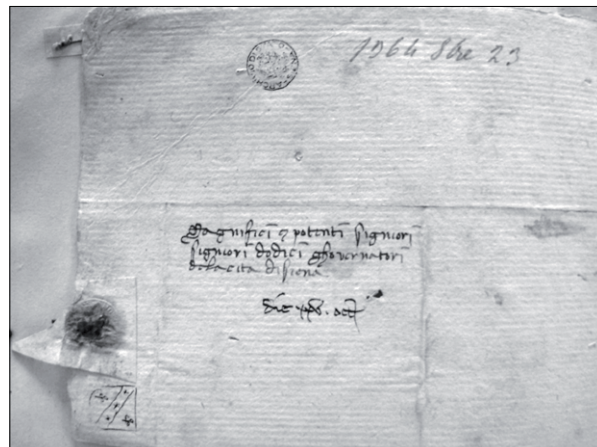 1364 8bre 23
Magnifici e potenti Signiori
Signiori dodici ghovernatori
dela cita di siena
die xxv. oct